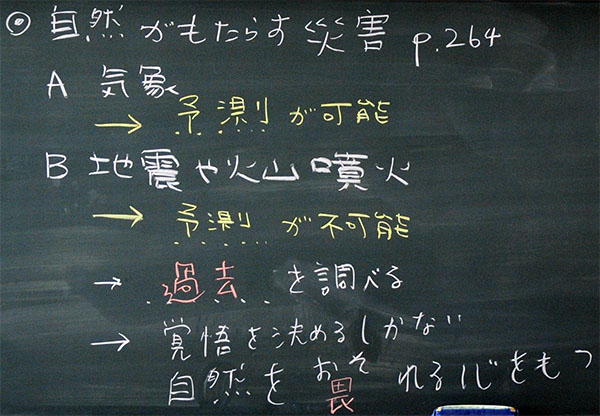 ◎ 自然がもたらす災害 p.264
A 気象
→ 予測が可能
B 地震や火山噴火
→ 予測が不可能
→ 過去を調べる
→ 覚悟を決めるしかない
自然を畏おそれる心をもつ